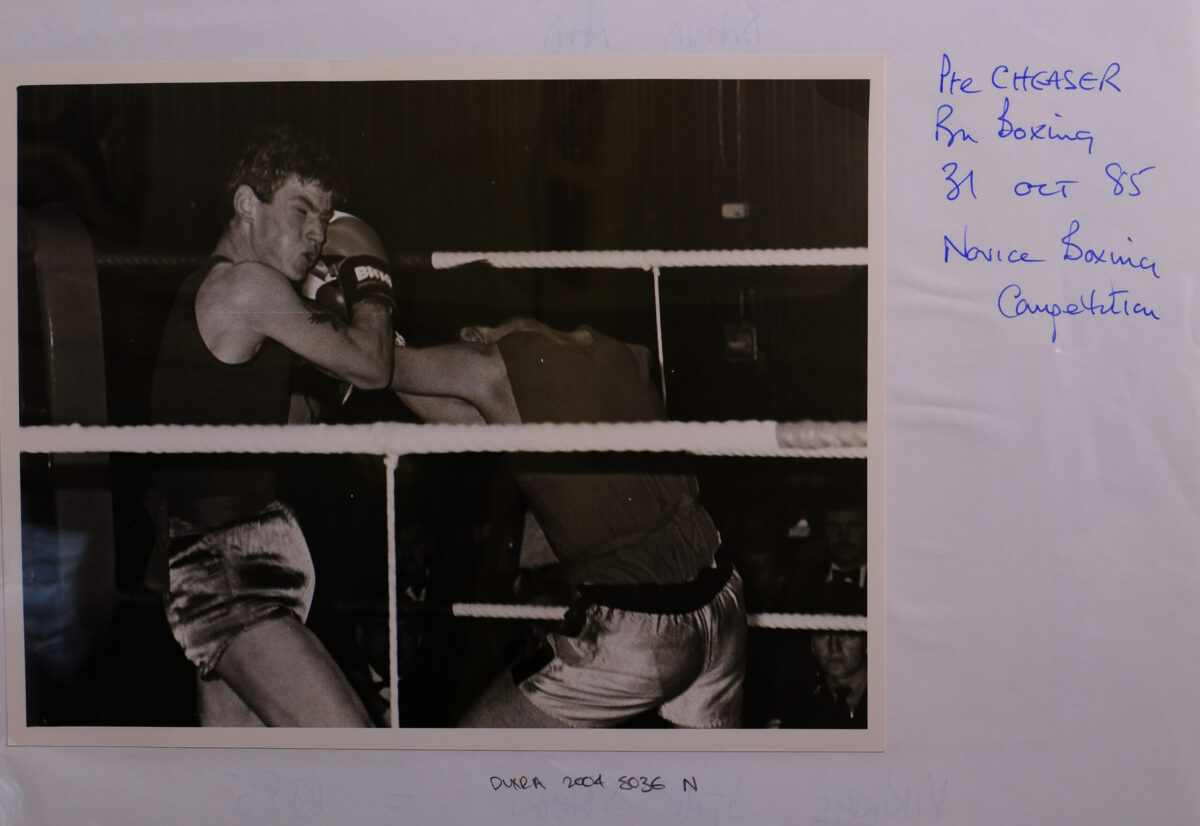 Pte CHEASER
Bn Boxing
31 OCT 85
Novice Boxing
Competition
DUKRA 2004 8036 N